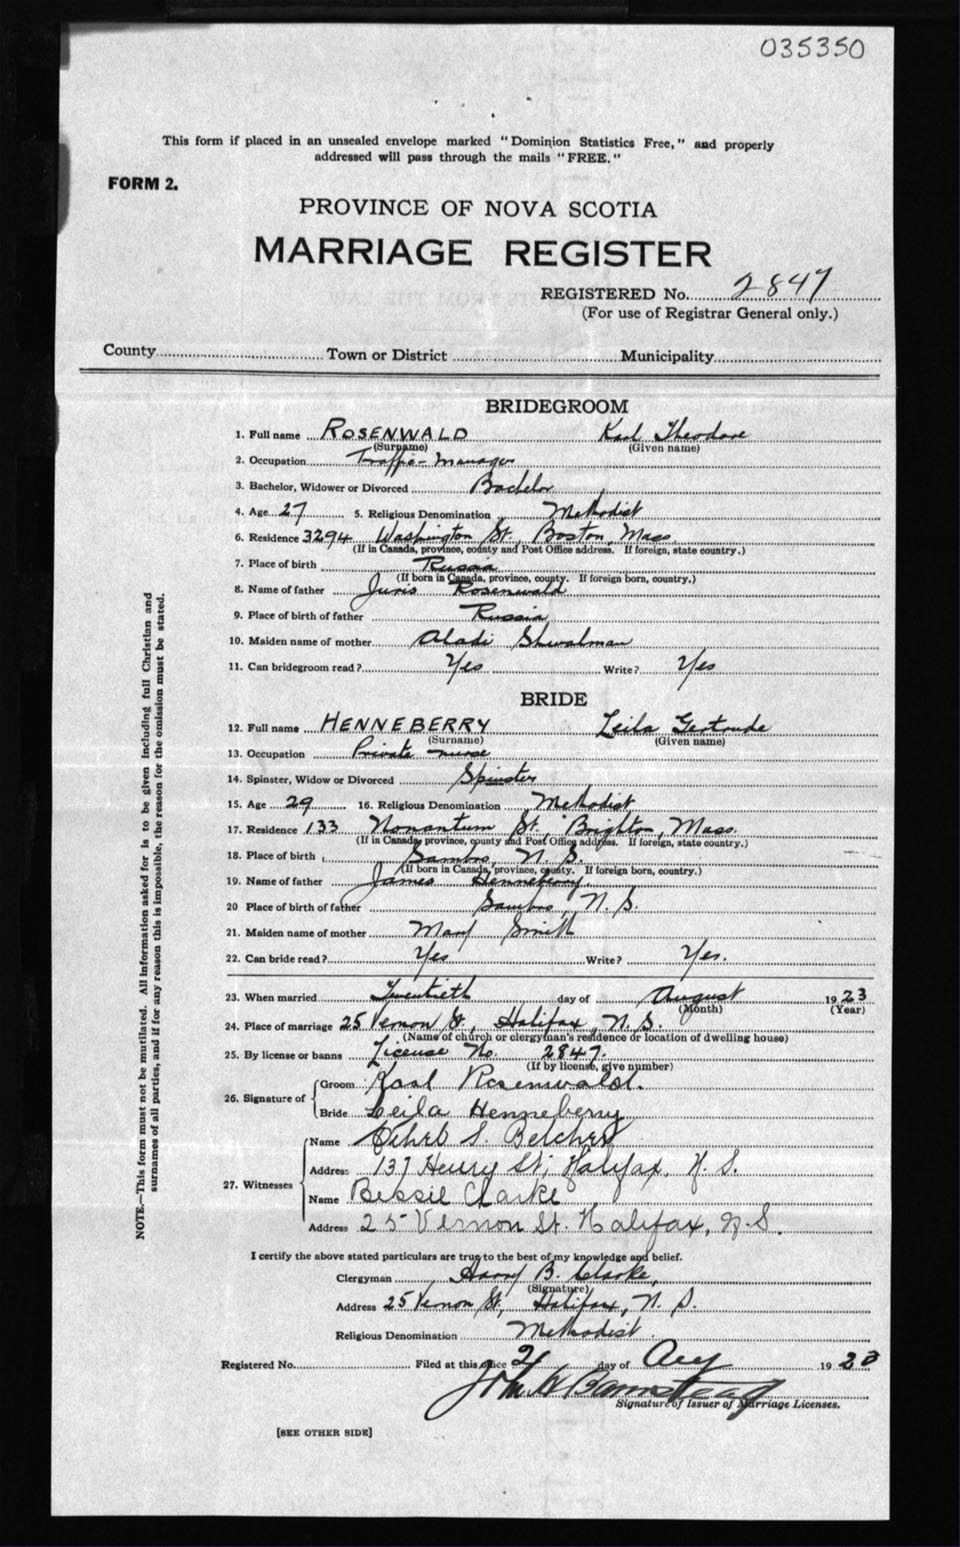 035350
This form if placed in an unsealed envelope marked "Dominion Statistics Free," and properly
addressed will pass through the mails "FREE."
FORM 2.
PROVINCE OF NOVA SCOTIA
MARRIAGE REGISTER
REGISTERED No. 2847
(For use of Registrar General only.)
County Town or District Municipality
BRIDEGROOM
1. Full name ROSENWALD Karl Theodore
(Surname) (Given name)
2. Occupation Traffic Manager
3. Bachelor, Widower or Divorced Bachelor
4. Age 27 5. Religious Denomination Methodist
6. Residence 3294 Washington St, Boston, Mass.
(If in Canada, province, county and Post Office address. If foreign, state country.)
7. Place of birth Russia
(If born in Canada, province, county. If foreign born, country.)
8. Name of father Juris Rosenwald
9. Place of birth of father Russia
10. Maiden name of mother
11. Can bridegroom read? Yes Write? Yes
BRIDE
12. Full name HENNEBERRY Leila Gertrude
(Surname) (Given name)
13. Occupation Private nurse
14. Spinster, Widow or Divorced Spinster
15. Age 29 16. Religious Denomination Methodist
17. Residence 133 Nonantum St, Brighton, Mass.
(If in Canada, province, county and Post Office address. If foreign, state country.)
18. Place of birth Sambro, N. S.
(If born in Canada, province, county. If foreign born, country.)
19. Name of father James Henneberry.
20 Place of birth of father Sambro, N. S.
21. Maiden name of mother Mary Smith
22. Can bride read? Yes Write? Yes.
23. When married Twentieth day of August 1923
(Month) (Year)
24. Place of marriage 25 Vernon St, Halifax, N. S.
(Name of church or clergyman's residence or location of dwelling house)
25. By license or banns License No. 2847.
(If by license, give number)
26. Signature of
Groom Karl Rosenwald.
Bride Leila Henneberry
27. Witnesses
Name S. Belcher
Address 137 Henry St, Halifax, N. S.
Name Bessie Clarke
Address 25 Vernon St. Halifax, N. S.
I certify the above stated particulars are true to the best of my knowledge and belief.
Clergyman Harry B. Clarke,
(Signature)
Address 25 Vernon St, Halifax, N. S.
Religious Denomination Methodist.
Registered No. Filed at this office day of Aug 1923
Signature of Issuer of Marriage Licenses.
[SEE OTHER SIDE]
NOTE.—This form must not be mutilated. All information asked for is to be given including full Christian and
surnames of all parties, and if for any reason this is impossible, the reason for the omission must be stated.